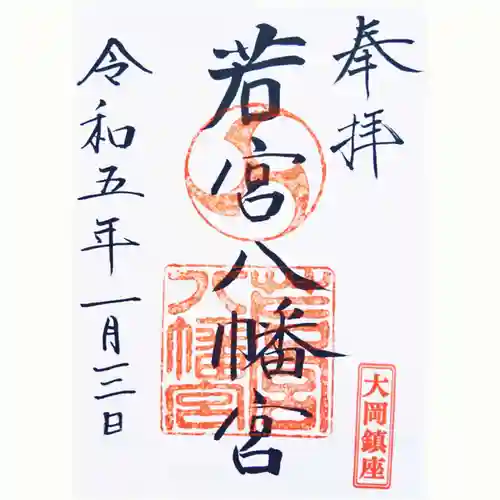 奉拝
大岡鎮座
若宮八幡宮
若宮八幡宮
令和五年一月三日